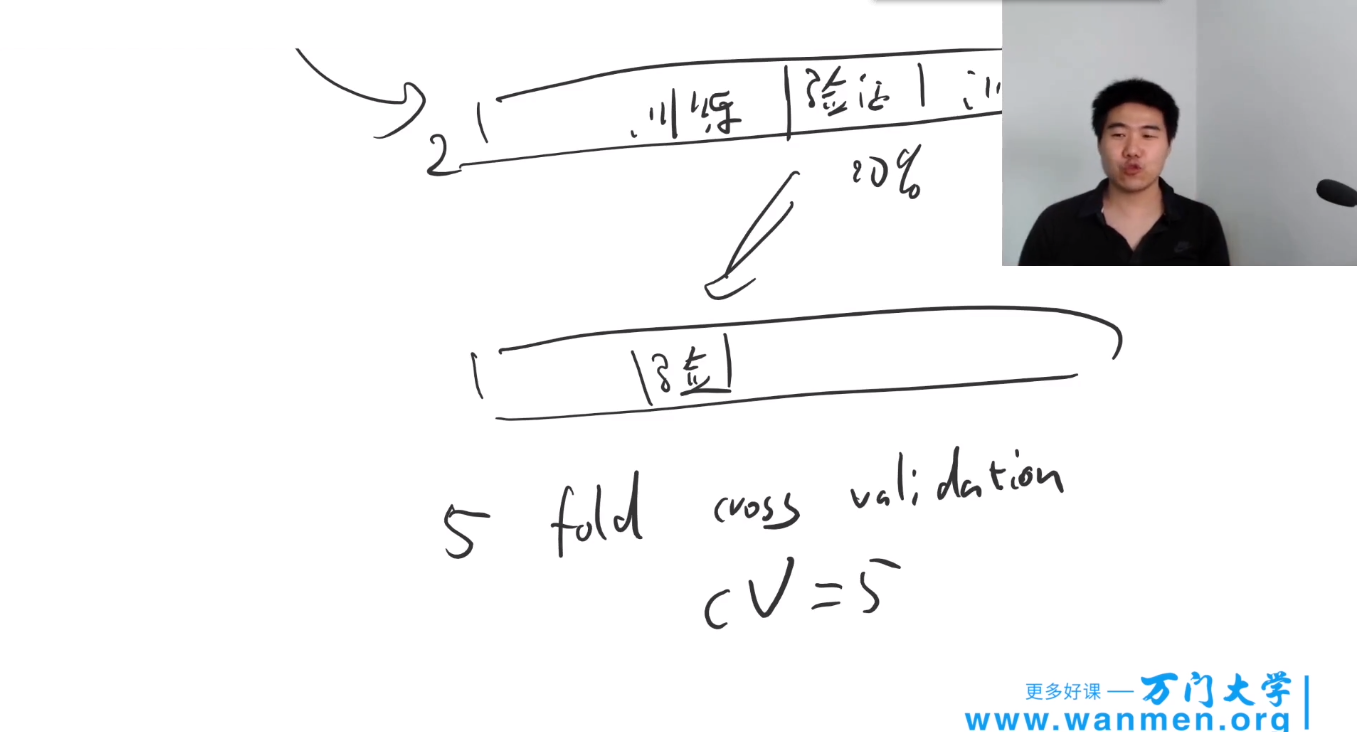 训练 验证 训
2
20%
验
5 fold cross validation
CV=5
更多好课 — 万门大学
www.wanmen.org